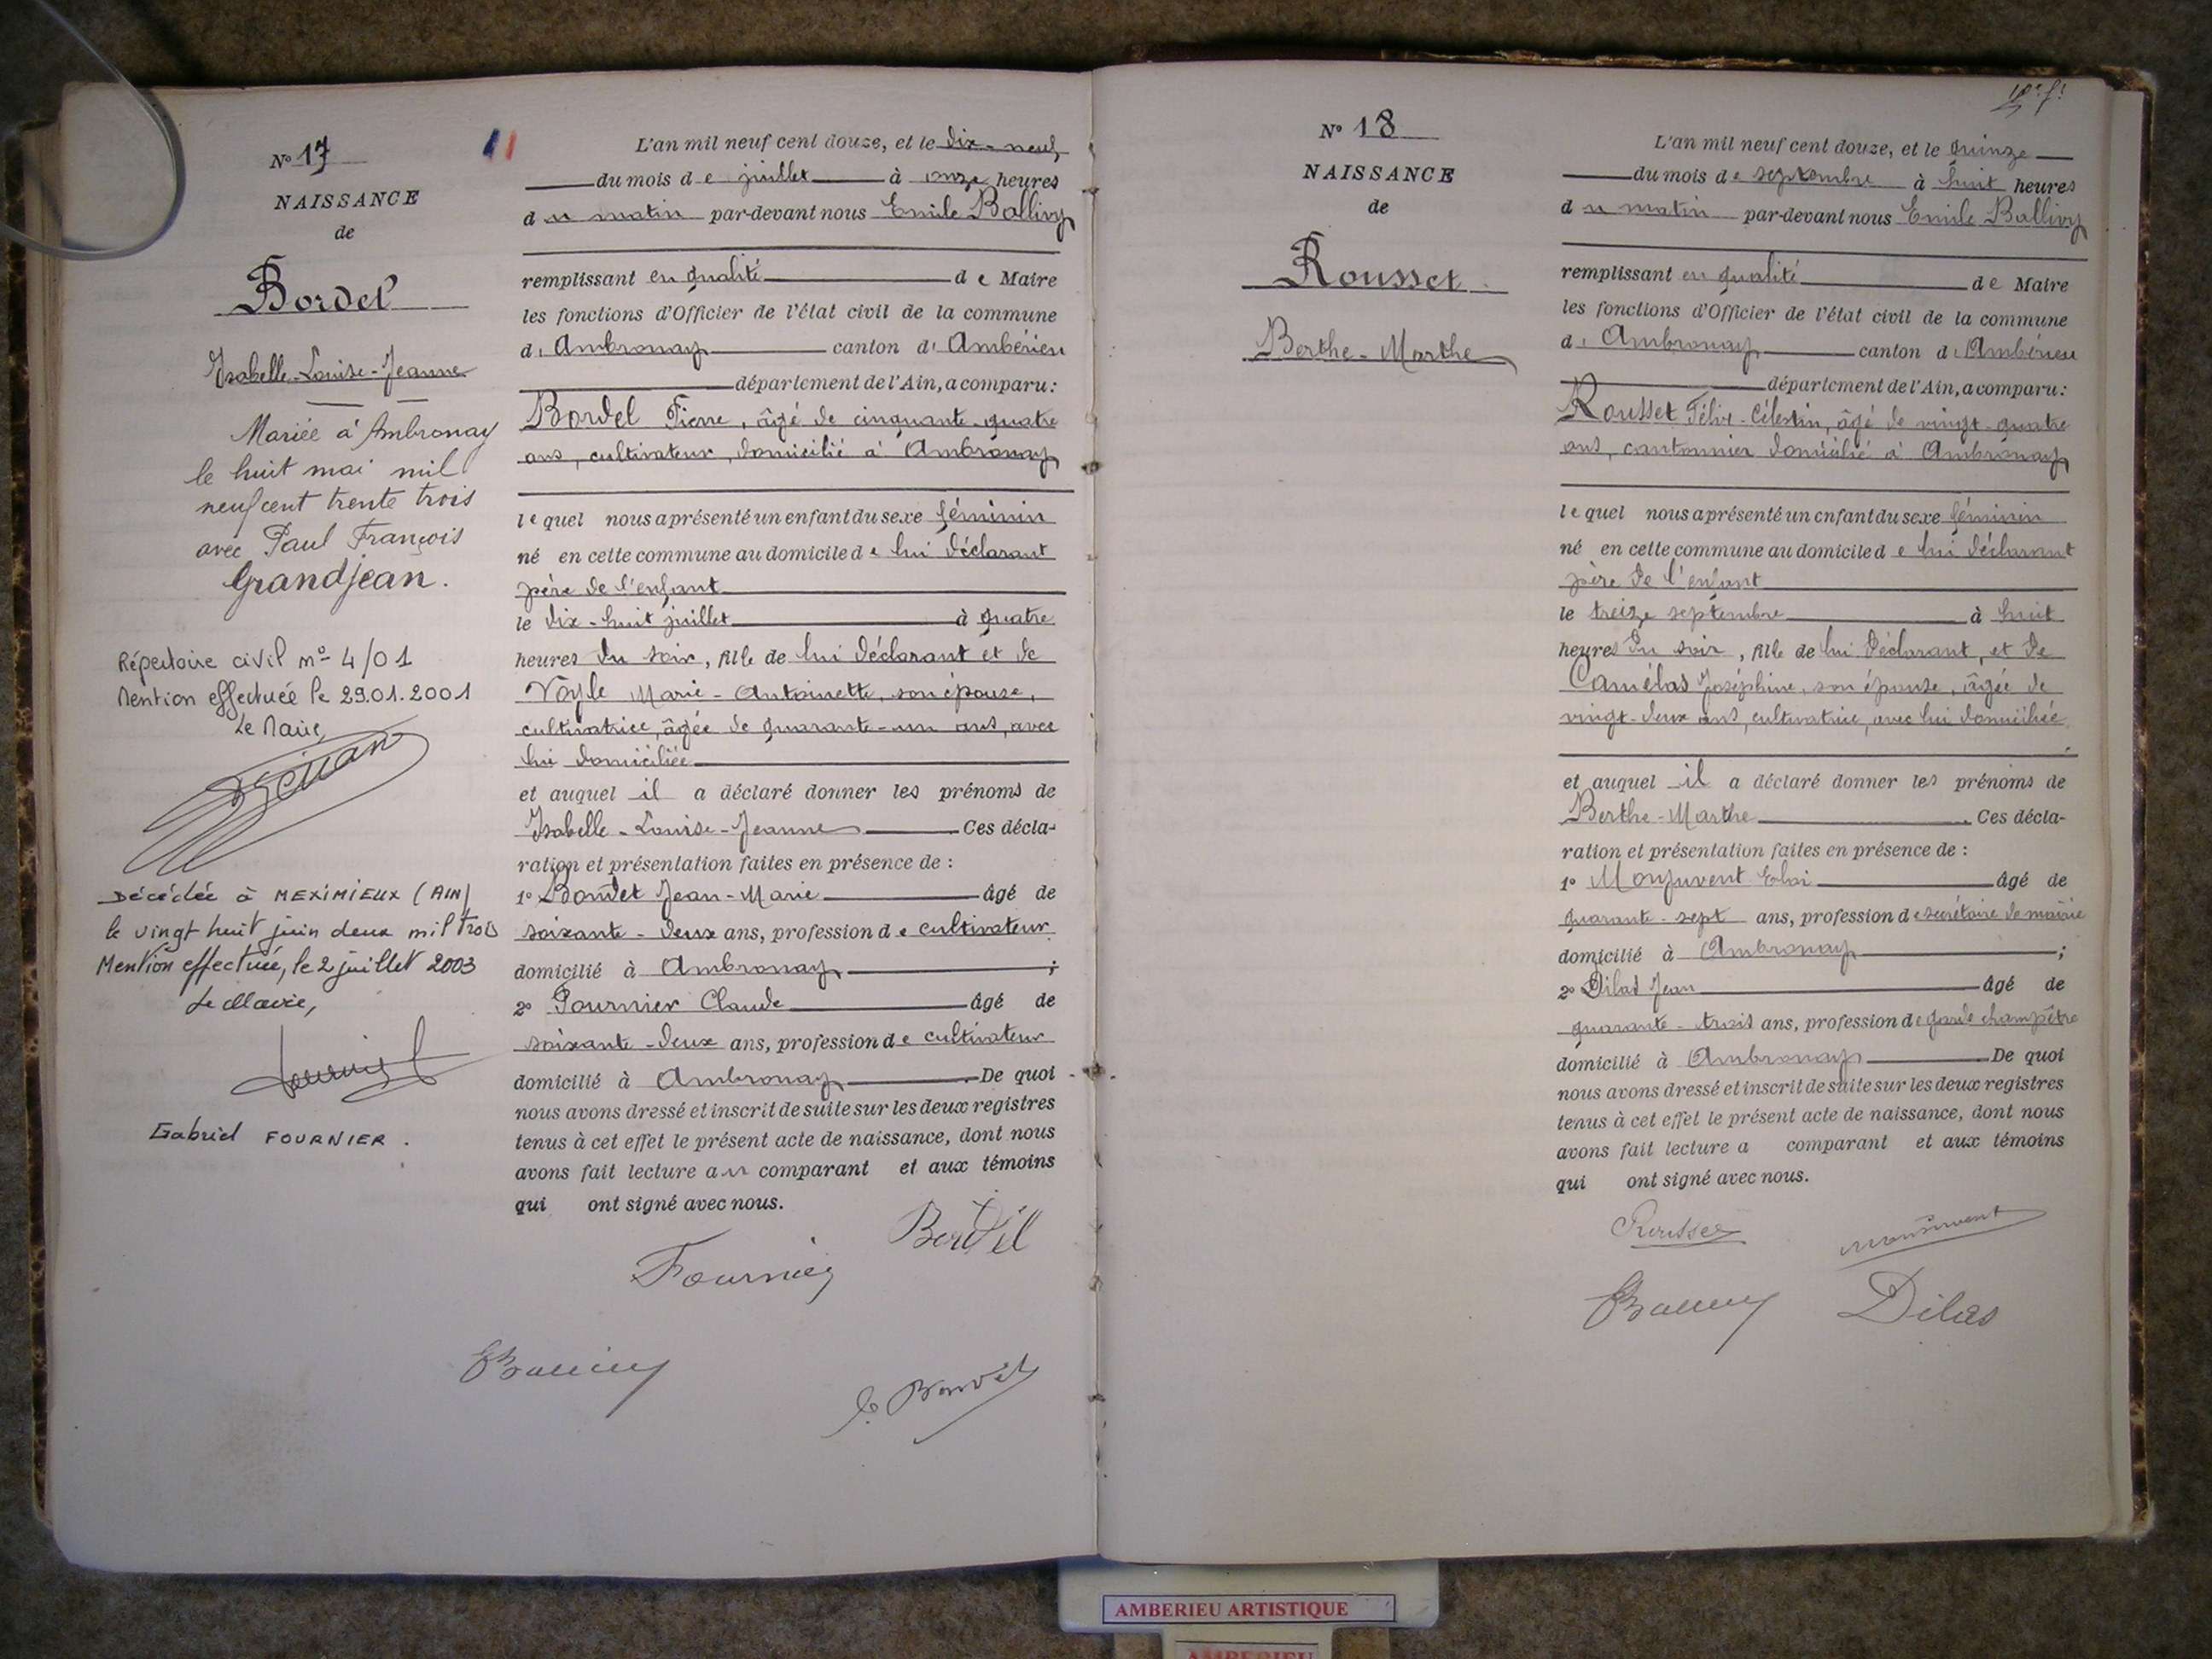 N° 17
NAISSANCE
de
Bordel
Isabelle-Louise-Jeanne
Mariée à Ambronay
le huit mai mil
neuf cent trente trois
avec Paul François
Grandjean.
Répertoire civil n° 4/01
Mention effectuée le 29.01.2001
Le Maire
Décédée à MEXIMIEUX (AIN)
le vingt huit juin deux mil trois
Mention effectuée, le 2 juillet 2003
Le Maire,
Gabriel FOURNIER.
L'an mil neuf cent douze, et le dix-neuf
du mois de juillet à onze heures
du matin par-devant nous Emile Ballivy
remplissant en qualité de Maire
les fonctions d'Officier de l'état civil de la commune
d'Ambronay canton d'Ambérieu
département de l'Ain, a comparu:
Bordel Pierre, âgé de cinquante-quatre
ans, cultivateur, domicilié à Ambronay
lequel nous a présenté un enfant du sexe féminin
né en cette commune au domicile de lui déclarant
père de l'enfant
le dix-huit juillet à quatre
heures du soir, fille de lui déclarant et de
Marie-Antoinette, son épouse,
cultivatrice, âgée de quarante-un ans, avec
lui domiciliée
et auquel il a déclaré donner les prénoms de
Isabelle-Louise-Jeanne Ces décla-
ration et présentation faites en présence de :
1° Jean-Marie âgé de
soixante-deux ans, profession de cultivateur
domicilié à Ambronay ;
2° Fournier Claude âgé de
soixante-deux ans, profession de cultivateur
domicilié à Ambronay. De quoi
nous avons dressé et inscrit de suite sur les deux registres
tenus à cet effet le présent acte de naissance, dont nous
avons fait lecture au comparant et aux témoins
qui ont signé avec nous.
Bordel
Fournier
N° 18
NAISSANCE
de
Rousset
Berthe-Marthe
L'an mil neuf cent douze, et le quinze
du mois de septembre à huit heures
du matin par-devant nous Emile Ballivy
remplissant en qualité de Maire
les fonctions d'Officier de l'état civil de la commune
d'Ambronay canton d'Ambérieu
département de l'Ain, a comparu:
Rousset Félix-Célestin, âgé de vingt-quatre
ans, cantonnier domicilié à Ambronay
lequel nous a présenté un enfant du sexe féminin
né en cette commune au domicile de lui déclarant
père de l'enfant
le treize septembre à huit
heures du soir, fille de lui déclarant, et de
Camélas Joséphine, son épouse, âgée de
vingt-deux ans, cultivatrice, avec lui domiciliée.
et auquel il a déclaré donner les prénoms de
Berthe-Marthe. Ces décla-
ration et présentation faites en présence de :
1° Monjuvent Eloi âgé de
quarante-sept ans, profession de secrétaire de mairie
domicilié à Ambronay ;
2° Dilas Jean âgé de
quarante-trois ans, profession de garde champêtre
domicilié à Ambronay De quoi
nous avons dressé et inscrit de suite sur les deux registres
tenus à cet effet le présent acte de naissance, dont nous
avons fait lecture a comparant et aux témoins
qui ont signé avec nous.
Rousset
Monjuvent
Dilas
AMBERIEU ARTISTIQUE
AMBERIEU